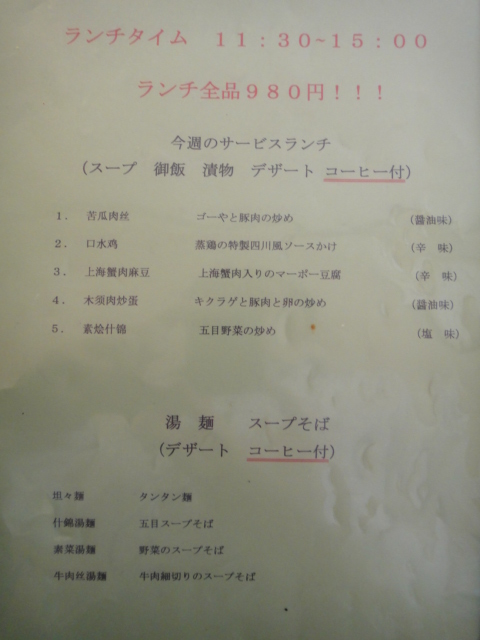 ランチタイム　１１：３０~１５：００
ランチ全品９８０円！！！
今週のサービスランチ
（スープ　御飯　漬物　デザート　コーヒー付）
１．　苦瓜肉丝　ゴーやと豚肉の炒め　（醤油味）
２．　口水鸡　蒸鶏の特製四川風ソースかけ　（辛　味）
３．　上海蟹肉麻豆　上海蟹肉入りのマーボー豆腐　（辛　味）
４．　木须肉炒蛋　キクラゲと豚肉と卵の炒め　（醤油味）
５．　素烩什锦　五目野菜の炒め　（塩　味）
湯　麺　スープそば
（デザート　コーヒー付）
坦々麺　タンタン麺
什錦湯麺　五目スープそば
素菜湯麺　野菜のスープそば
牛肉丝湯麺　牛肉細切りのスープそば